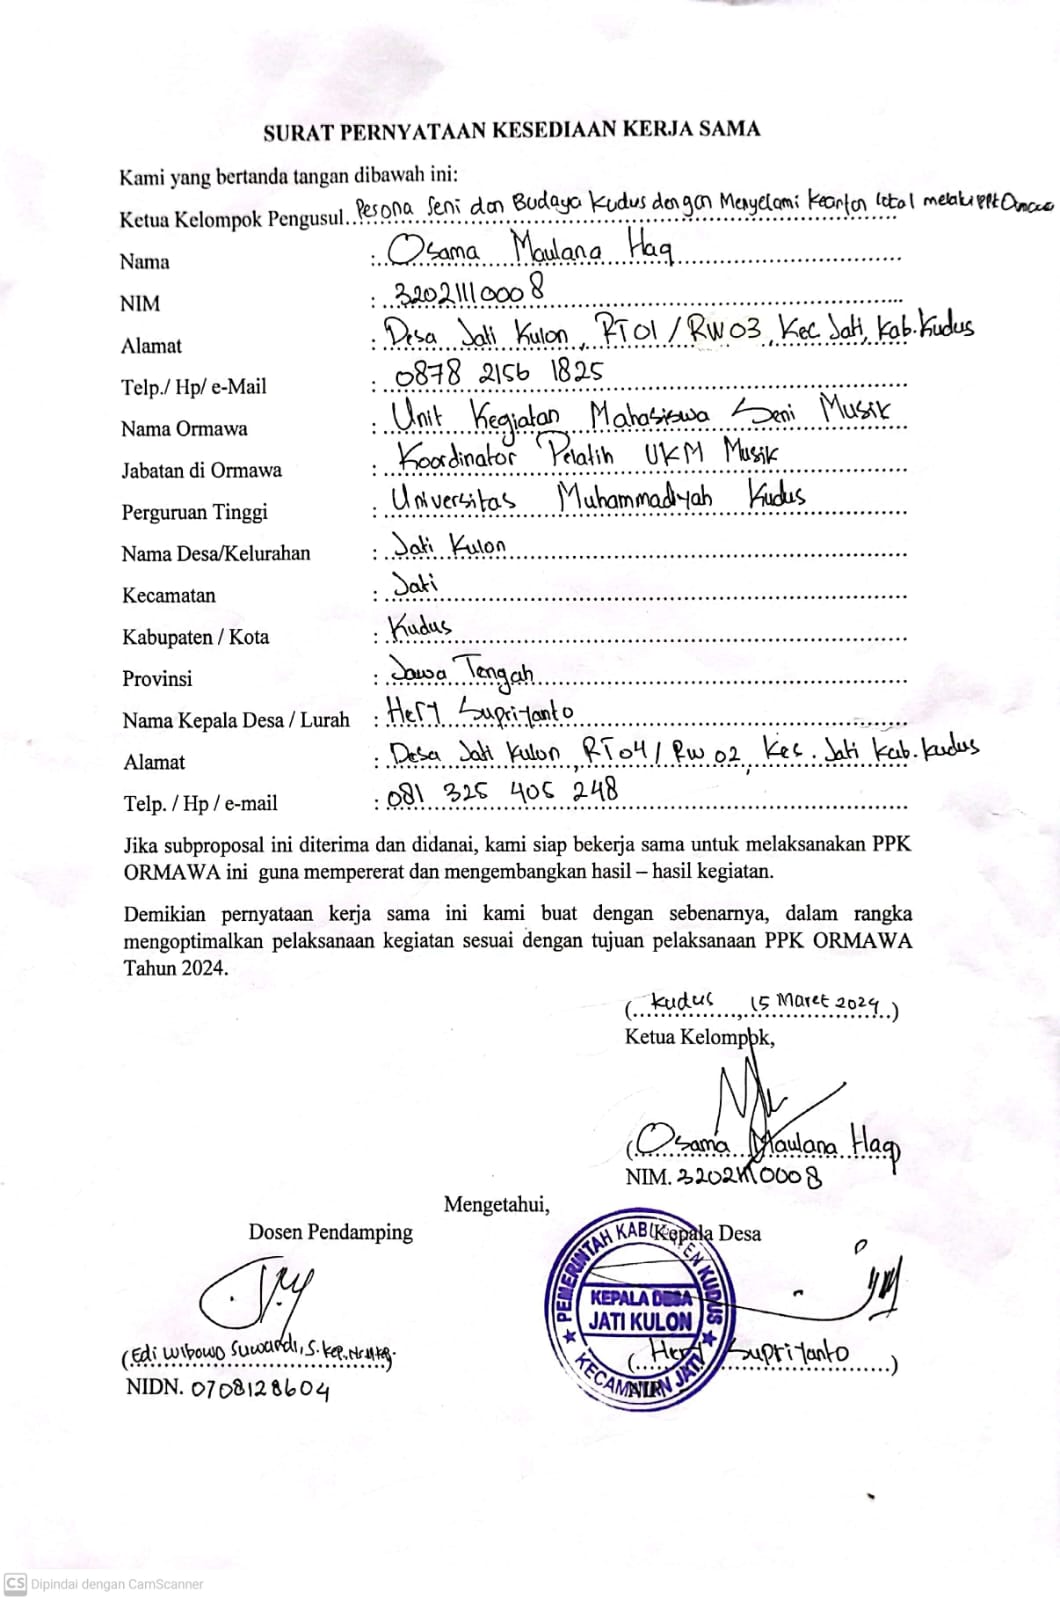 SURAT PERNYATAAN KESEDIAAN KERJA SAMA
Kami yang bertanda tangan dibawah ini:
Ketua Kelompok Pengusul Pesona Seni dan Budaya Kudus dengan Menyelami Kearifan lokal melalui PPK
Nama : Osama Maulana Haq
NIM : 32021110008
Alamat : Desa Jati Kulon, RT01/RW03, Kec Jati, Kab.Kudus
Telp./ Hp/ e-Mail : 0878 2156 1825
Nama Ormawa : Unit Kegiatan Mahasiswa Seni Musik
Jabatan di Ormawa : Koordinator Pelatih UKM Musik
Perguruan Tinggi : Universitas Muhammadiyah Kudus
Nama Desa/Kelurahan : Jati Kulon
Kecamatan : Jati
Kabupaten / Kota : Kudus
Provinsi : Jawa Tengah
Nama Kepala Desa / Lurah : Hery Supriyanto
Alamat : Desa Jati Kulon, RT04/RW.02, Kec. Jati Kab.kudus
Telp. / Hp / e-mail : 081 325 405 248
Jika subproposal ini diterima dan didanai, kami siap bekerja sama untuk melaksanakan PPK
ORMAWA ini guna mempererat dan mengembangkan hasil – hasil kegiatan.
Demikian pernyataan kerja sama ini kami buat dengan sebenarnya, dalam rangka
mengoptimalkan pelaksanaan kegiatan sesuai dengan tujuan pelaksanaan PPK ORMAWA
Tahun 2024.
(Kudus, 15 Maret 2024)
Ketua Kelompok,
(Osama Maulana Haq)
NIM. 32021110008
Mengetahui,
Dosen Pendamping
Kepala Desa
PEMERINTAH KABUPATEN KUDUS
KEPALA DESA
JATI KULON
KECAMATAN JATI
(Edi Wibowo Suwandi, S.Kep.,Ns.,M.Kep.)
NIDN. 0708128604
(Hery Supriyanto)
CS Dipindai dengan CamScanner